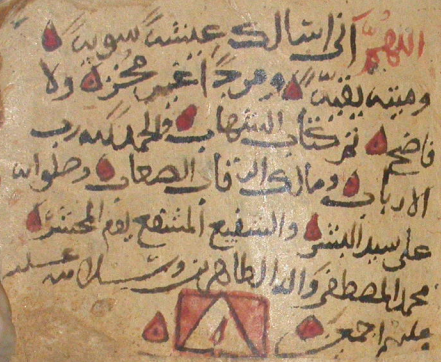 اللهم اني اسالك عيشة سوية
وميتة نقية ومردا غير مخز ولا
فاضح تم كتاب الشهاب والحمد لله رب
الارباب ومالك الرقاب الصعاب وصلواته
على سيد البشر والشفيع المشفع يوم المحشر
محمد المصطفى واله الطاهرين وسلامه عليه
عليهم اجمعين